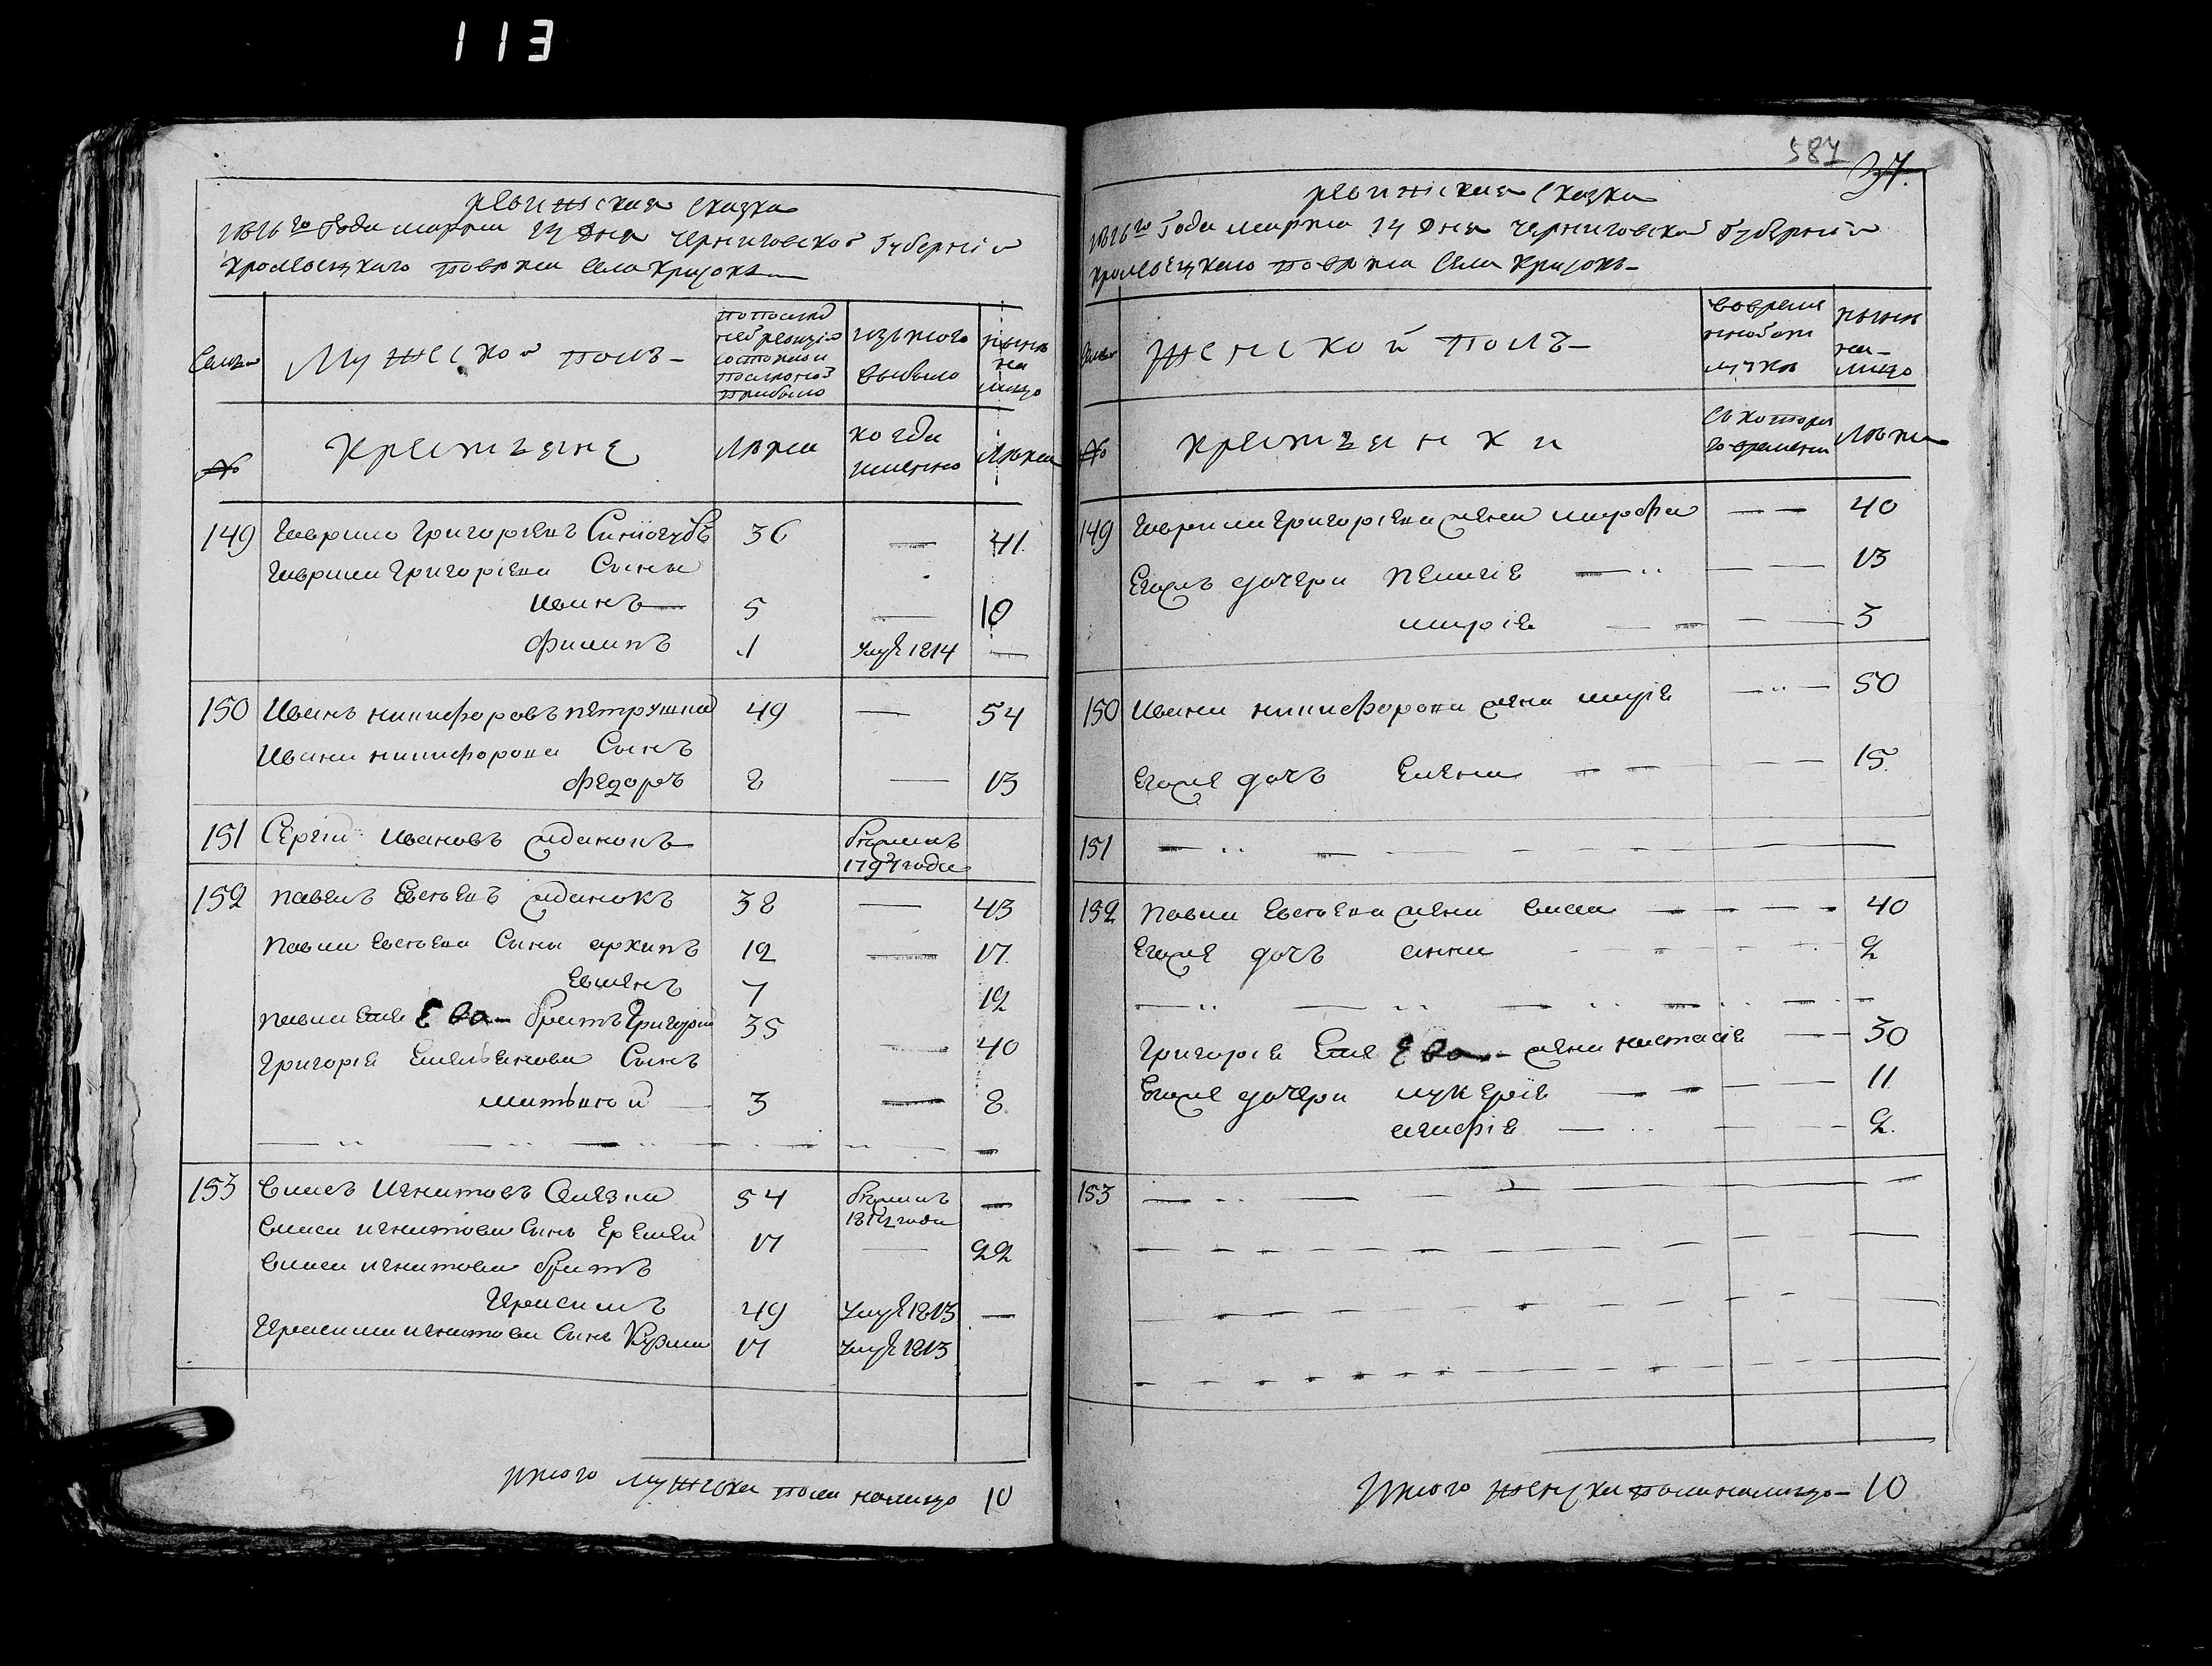 113
Ревижская сказка
1816го Года марта 14 Дня Черниговской Губернiи
Кролевецкаго повета Села Кризокъ
Семьи
Мужеской полъ
по последней ревизiи состояло и после оной прибыло
изъ того выбыло
ныне на лицо
№
Крестьяне
Лета
когда именно
Лета
149 Гаврило Григорiевъ Синюгубъ 36 — 41.
Гаврила Григорiева Сыны
Иванъ 5 — 10
Филипъ 1 умре 1814 —
150 Иванъ никифоровъ петрушка 49 — 54
Ивана никифорова Сынъ
Федоръ 8 — 13
151 Сергiй Ивановъ
бежалъ 1797 года
152 павелъ Евсеевъ 38 — 43
павла Евсеева Сыны архипъ 12 — 17.
7 12
павла Ева братъ Григорiй 35 — 40
Григорiя Сынъ
матвей 3 — 8
153 Власъ Игнатовъ 54 бежалъ 1812 года —
Власа игнатова Сынъ Еремей 17 — 22
Власа игнатова братъ
Герасимъ 49 умре 1813 —
Герасима игнатова Сынъ Кузма 17 умре 1813
Итого мужеска пола налицо 10
587
37.
Ревижская Сказка
1816го Года марта 14 Дня Черниговской Губернiи
Кролевецкаго повета Села Кризокъ
Семьи
Женской полъ
во временной отлучке
ныне на лицо
№
крестьянки
съ котораго времени
Лета
149 Гаврила Григорiева жена марфа — — 40
Егожъ дочери пелагiя — — 13
марiя — — 3
150 Ивана никифорова жена марiя — — 50
Егоже дочь Елена — — 15.
151 — — —
152 павла Евсеева жена — — 40
Егоже дочь анна 2
Григорiя Ева жена настасiя — 30
Егоже дочери лукерiя — — 11
агафiя — — 2.
153 — — —
Итого женска пола налицо — 10